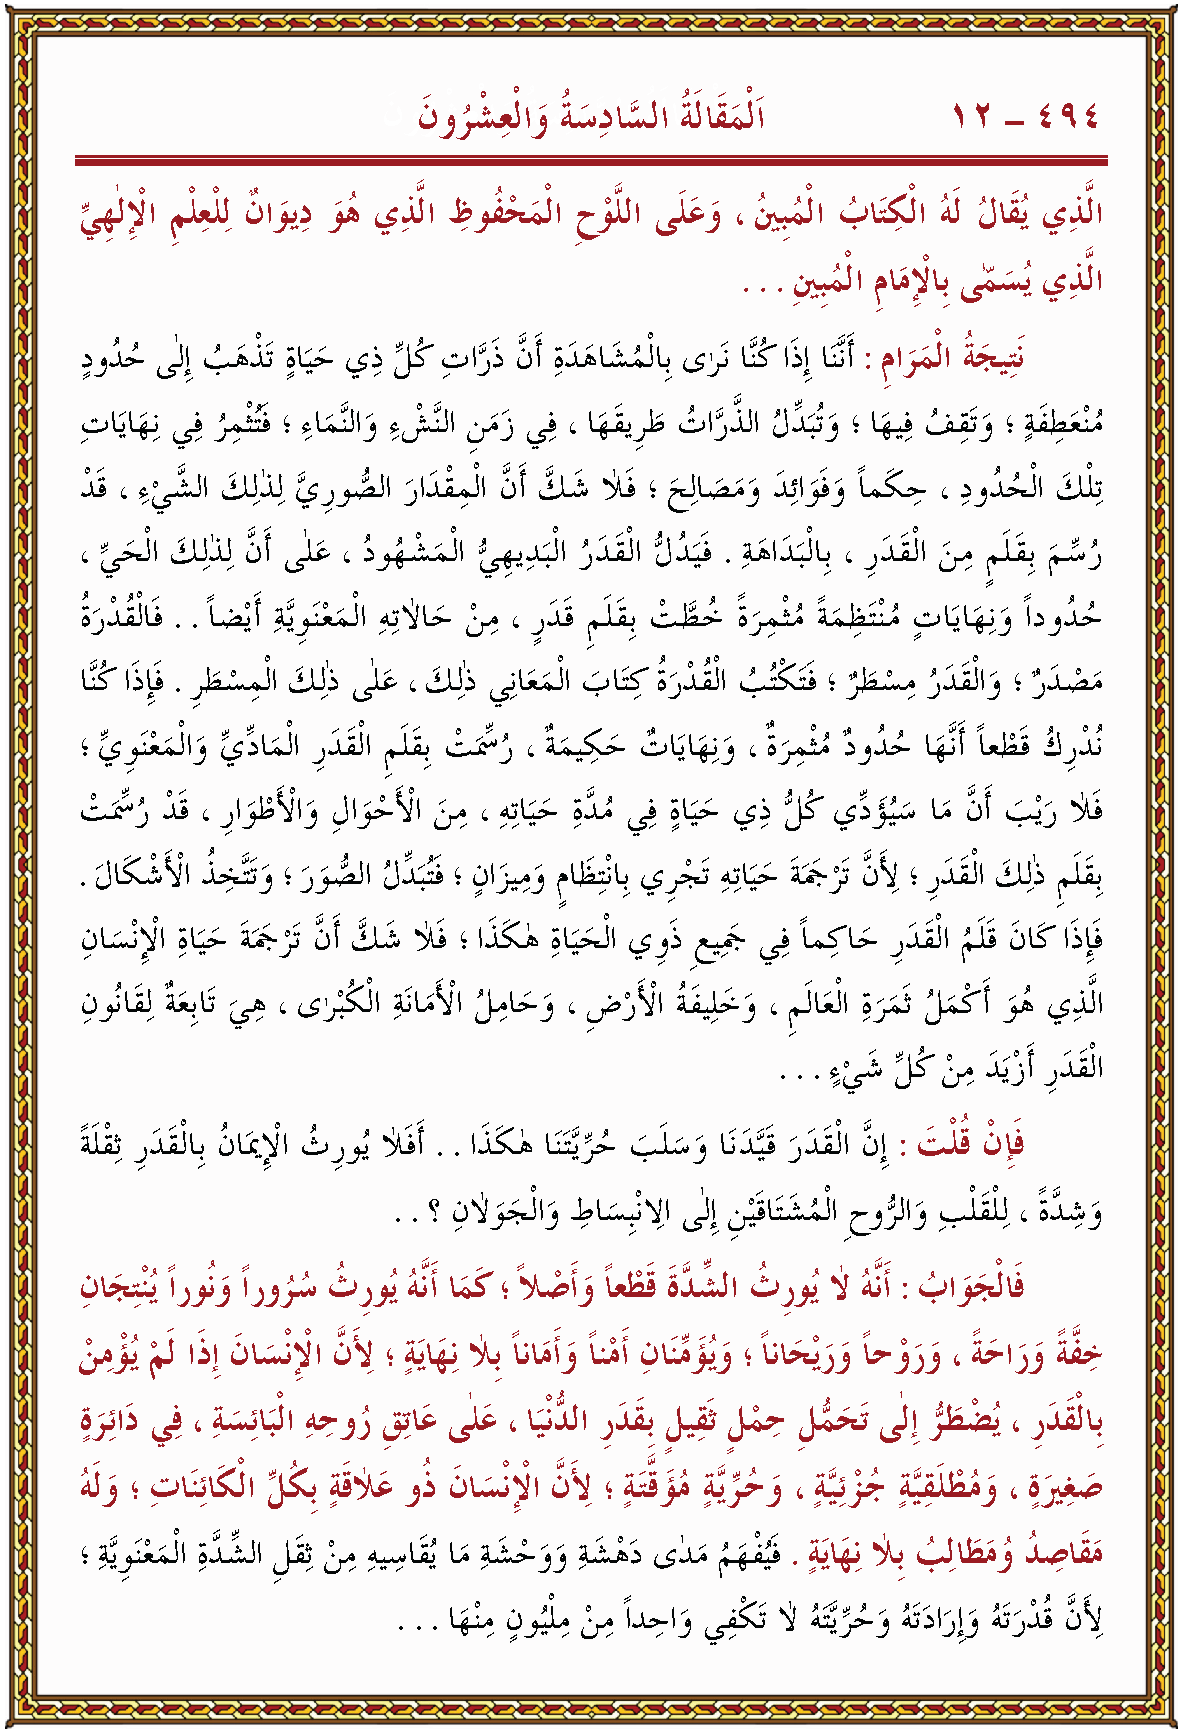 ٤٩٤ – ١٢ اَلْمَقَالَةُ السَّادِسَةُ وَالْعِشْرُونَ
الَّذِي يُقَالُ لَهُ الْكِتَابُ الْمُبِينُ ، وَعَلَى اللَّوْحِ الْمَحْفُوظِ الَّذِي هُوَ دِيوَانٌ لِلْعِلْمِ الْإِلٰهِيِّ
الَّذِي يُسَمّٰى بِالْإِمَامِ الْمُبِينِ . . .
نَتِيجَةُ الْمَرَامِ : أَنَّنَا إِذَا كُنَّا نَرٰى بِالْمُشَاهَدَةِ أَنَّ ذَرَّاتِ كُلِّ ذِي حَيَاةٍ تَذْهَبُ إِلٰى حُدُودٍ
مُنْعَطِفَةٍ ؛ وَتَقِفُ فِيهَا ؛ وَتُبَدِّلُ الذَّرَّاتُ طَرِيقَهَا ، فِي زَمَنِ النَّشْءِ وَالنَّمَاءِ ؛ فَتُثْمِرُ فِي نِهَايَاتِ
تِلْكَ الْحُدُودِ ، حِكَماً وَفَوَائِدَ وَمَصَالِحَ ؛ فَلَا شَكَّ أَنَّ الْمِقْدَارَ الصُّورِيَّ لِذٰلِكَ الشَّيْءِ ، قَدْ
رُسِّمَ بِقَلَمٍ مِنَ الْقَدَرِ ، بِالْبَدَاهَةِ . فَيَدُلُّ الْقَدَرُ الْبَدِيهِيُّ الْمَشْهُودُ ، عَلٰى أَنَّ لِذٰلِكَ الْحَيِّ ،
حُدُوداً وَنِهَايَاتٍ مُنْتَظِمَةً مُثْمِرَةً خُطَّتْ بِقَلَمِ قَدَرٍ ، مِنْ حَالَاتِهِ الْمَعْنَوِيَّةِ أَيْضاً . . فَالْقُدْرَةُ
مَصْدَرٌ ؛ وَالْقَدَرُ مِسْطَرٌ ؛ فَتَكْتُبُ الْقُدْرَةُ كِتَابَ الْمَعَانِي ذٰلِكَ ، عَلٰى ذٰلِكَ الْمِسْطَرِ . فَإِذَا كُنَّا
نُدْرِكُ قَطْعاً أَنَّهَا حُدُودٌ مُثْمِرَةٌ ، وَنِهَايَاتٌ حَكِيمَةٌ ، رُسِّمَتْ بِقَلَمِ الْقَدَرِ الْمَادِّيِّ وَالْمَعْنَوِيِّ ؛
فَلَا رَيْبَ أَنَّ مَا سَيُؤَدِّي كُلُّ ذِي حَيَاةٍ فِي مُدَّةِ حَيَاتِهِ ، مِنَ الْأَحْوَالِ وَالْأَطْوَارِ ، قَدْ رُسِّمَتْ
بِقَلَمِ ذٰلِكَ الْقَدَرِ ؛ لِأَنَّ تَرْجَمَةَ حَيَاتِهِ تَجْرِي بِانْتِظَامٍ وَمِيزَانٍ ؛ فَتُبَدِّلُ الصُّوَرَ ؛ وَتَتَّخِذُ الْأَشْكَالَ .
فَإِذَا كَانَ قَلَمُ الْقَدَرِ حَاكِماً فِي جَمِيعِ ذَوِي الْحَيَاةِ هٰكَذَا ؛ فَلَا شَكَّ أَنَّ تَرْجَمَةَ حَيَاةِ الْإِنْسَانِ
الَّذِي هُوَ أَكْمَلُ ثَمَرَةِ الْعَالَمِ ، وَخَلِيفَةُ الْأَرْضِ ، وَحَامِلُ الْأَمَانَةِ الْكُبْرٰى ، هِيَ تَابِعَةٌ لِقَانُونِ
الْقَدَرِ أَزْيَدَ مِنْ كُلِّ شَيْءٍ . . .
فَإِنْ قُلْتَ : إِنَّ الْقَدَرَ قَيَّدَنَا وَسَلَبَ حُرِّيَّتَنَا هٰكَذَا . . أَفَلَا يُورِثُ الْإِيمَانُ بِالْقَدَرِ ثِقْلَةً
وَشِدَّةً ، لِلْقَلْبِ وَالرُّوحِ الْمُشْتَاقَيْنِ إِلٰى الِانْبِسَاطِ وَالْجَوَلَانِ ؟ . .
فَالْجَوَابُ : أَنَّهُ لَا يُورِثُ الشِّدَّةَ قَطْعاً وَأَصْلاً ؛ كَمَا أَنَّهُ يُورِثُ سُرُوراً وَنُوراً يُنْتِجَانِ
خِفَّةً وَرَاحَةً ، وَرَوْحاً وَرَيْحَاناً ؛ وَيُؤَمِّنَانِ أَمْناً وَأَمَاناً بِلَا نِهَايَةٍ ؛ لِأَنَّ الْإِنْسَانَ إِذَا لَمْ يُؤْمِنْ
بِالْقَدَرِ ، يُضْطَرُّ إِلٰى تَحَمُّلِ حِمْلٍ ثَقِيلٍ بِقَدَرِ الدُّنْيَا ، عَلٰى عَاتِقِ رُوحِهِ الْبَائِسَةِ ، فِي دَائِرَةٍ
صَغِيرَةٍ ، وَمُطْلَقِيَّةٍ جُزْئِيَّةٍ ، وَحُرِّيَّةٍ مُؤَقَّتَةٍ ؛ لِأَنَّ الْإِنْسَانَ ذُو عَلَاقَةٍ بِكُلِّ الْكَائِنَاتِ ؛ وَلَهُ
مَقَاصِدُ وَمَطَالِبُ بِلَا نِهَايَةٍ . فَيُفْهَمُ مَدٰى دَهْشَةِ وَوَحْشَةِ مَا يُقَاسِيهِ مِنْ ثِقَلِ الشِّدَّةِ الْمَعْنَوِيَّةِ ؛
لِأَنَّ قُدْرَتَهُ وَإِرَادَتَهُ وَحُرِّيَّتَهُ لَا تَكْفِي وَاحِداً مِنْ مِلْيُونٍ مِنْهَا . . .